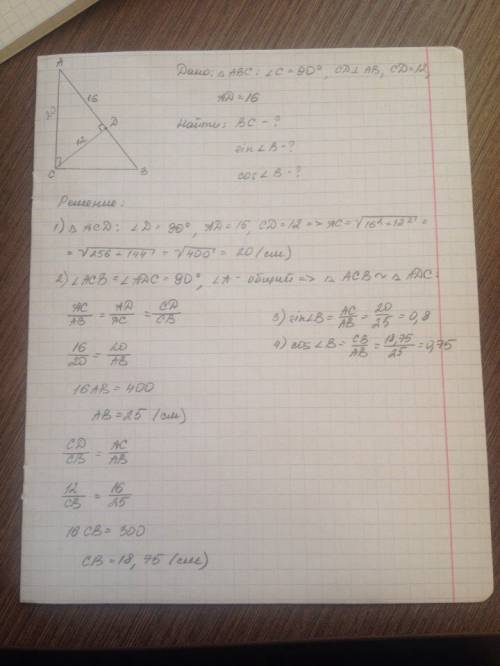 A
16
20
D
12
C
B
Дано: △ABC: ∠C = 90°, CD⊥AB, CD=12,
AD=16
Найти: BC - ?
sin∠B - ?
cos∠B - ?
Решение:
1) △ACD: ∠D = 90°, AD = 16, CD = 12 => AC = √16²+12² =
= √256 + 144 = √400 = 20 (см)
2) ∠ACB = ∠ADC = 90°, ∠A - общий => △ACB ~ △ADC:
AC/AB = AD/AC = CD/CB
16/20 = 20/AB
16AB = 400
AB = 25 (см)
CD/CB = AC/AB
12/CB = 16/25
16CB = 300
CB = 18,75 (см)
3) sin∠B = AC/AB = 20/25 = 0,8
4) cos∠B = CB/AB = 18,75/25 = 0,75